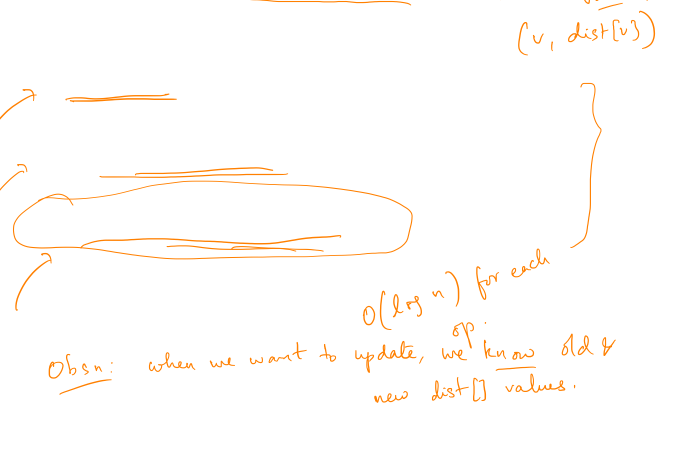 (v, dist[v])
O(log n) for each
op.
Obsn: when we want to update, we know old &
new dist[] values.